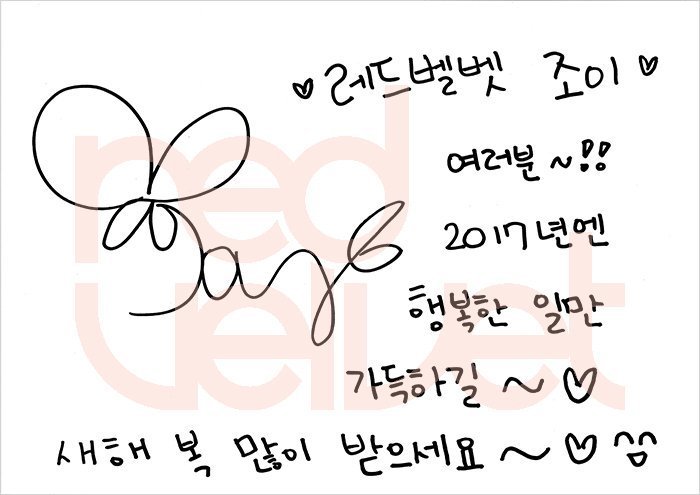 ♡ 레드벨벳 조이 ♡
여러분~!!
2017년엔
행복한 일만
가득하길~♡
새해 복 많이 받으세요~♡ ^^
red
velvet